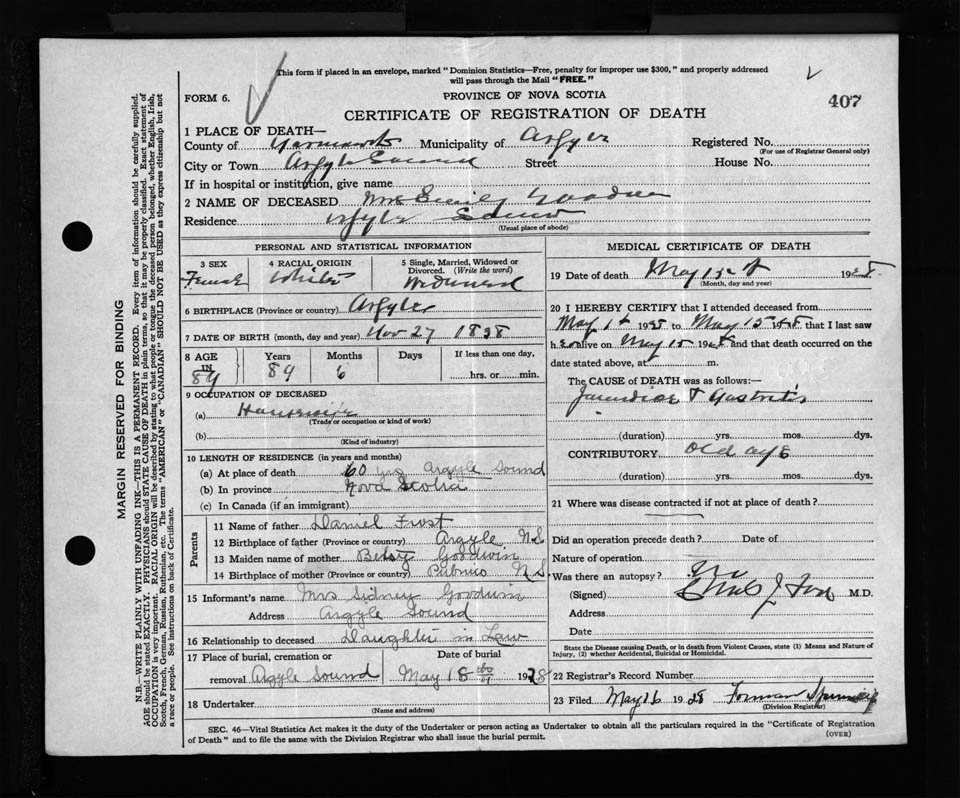 This form if placed in an envelope, marked "Dominion Statistics—Free, penalty for improper use $300," and properly addressed
will pass through the Mail "FREE."
FORM 6.
PROVINCE OF NOVA SCOTIA
407
CERTIFICATE OF REGISTRATION OF DEATH
1 PLACE OF DEATH—
County of Yarmouth Municipality of Argyle Registered No.
(For use of Registrar General only)
City or Town Argyle Sound Street House No.
If in hospital or institution, give name
2 NAME OF DECEASED Mrs Emily Goodwin
Residence Argyle Sound
(Usual place of abode)
PERSONAL AND STATISTICAL INFORMATION
3 SEX 4 RACIAL ORIGIN 5 Single, Married, Widowed or
Divorced. (Write the word)
Female White Widowed
6 BIRTHPLACE (Province or country) Argyle
7 DATE OF BIRTH (month, day and year) Nov 27 1838
8 AGE Years Months Days If less than one day,
IN
89 89 6 hrs. or min.
9 OCCUPATION OF DECEASED
(a) Housewife
(Trade or occupation or kind of work)
(b)
(Kind of industry)
10 LENGTH OF RESIDENCE (in years and months)
(a) At place of death 60 yrs Argyle Sound
(b) In province Nova Scotia
(c) In Canada (if an immigrant)
Parents
11 Name of father Daniel Frost
12 Birthplace of father (Province or country) Argyle N.S
13 Maiden name of mother Betsy Goodwin
14 Birthplace of mother (Province or country) Pubnico N S
15 Informant's name Mrs Sidney Goodwin
Address Argyle Sound
16 Relationship to deceased Daughter in Law
17 Place of burial, cremation or Date of burial
removal Argyle Sound May 18 1928
18 Undertaker
(Name and address)
MEDICAL CERTIFICATE OF DEATH
19 Date of death May 15 1928
(Month, day and year)
20 I HEREBY CERTIFY that I attended deceased from
May 1st 1928 to May 15 1928 that I last saw
her alive on May 15 1928 and that death occurred on the
date stated above, at m.
The CAUSE OF DEATH was as follows:—
Jaundice & Gastritis
(duration) yrs. mos. dys.
CONTRIBUTORY Old age
(duration) yrs. mos. dys.
21 Where was disease contracted if not at place of death?
Did an operation precede death? Date of
Nature of operation
Was there an autopsy? no
(Signed) M.D.
Address
Date
State the Disease causing Death, or in death from Violent Causes, state (1) Means and Nature of
Injury, (2) whether Accidental, Suicidal or Homicidal.
22 Registrar's Record Number
23 Filed May 16 1928 Forman
(Division Registrar)
SEC. 46—Vital Statistics Act makes it the duty of the Undertaker or person acting as Undertaker to obtain all the particulars required in the "Certificate of Registration
of Death" and to file the same with the Division Registrar who shall issue the burial permit.
(OVER)
MARGIN RESERVED FOR BINDING
N.B.—WRITE PLAINLY WITH UNFADING INK—THIS IS A PERMANENT RECORD. Every item of information should be carefully supplied.
AGE should be stated EXACTLY. PHYSICIANS should STATE CAUSE OF DEATH in plain terms, so that it may be properly classified. Exact statement of
OCCUPATION is very important. RACIAL ORIGIN will be described by stating to what people or tongue the deceased person belonged, whether English, Irish,
Scotch, French, German, Russian, Ruthenian, etc. The terms "AMERICAN" or "CANADIAN" SHOULD NOT BE USED as they express citizenship but not
a race or people. See instructions on back of Certificate.